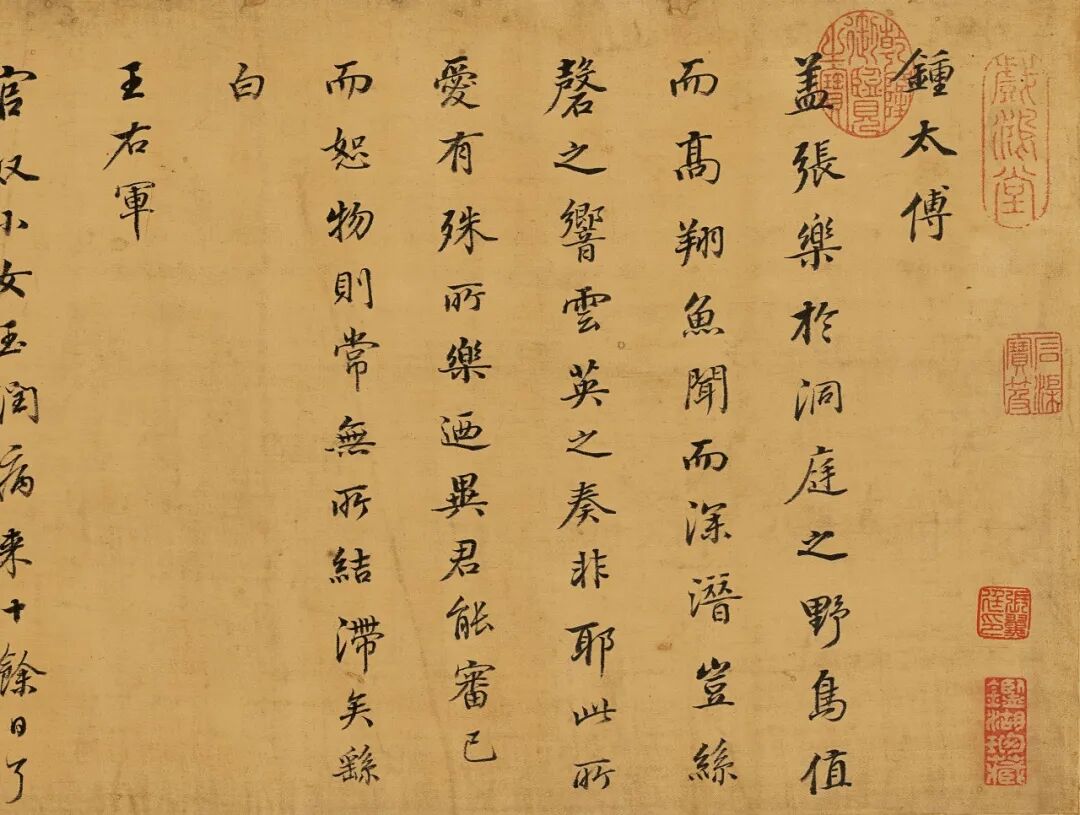 戲鴻堂
乾隆御覽之寶
石渠寶笈
鍾太傅
蓋張樂於洞庭之野鳥值
而髙翔魚聞而深潛豈絲
磬之響雲英之奏非耶此所
愛有殊所樂迺異君能審己
而恕物則常無所結滯矣繇
白
王右軍
官奴小女玉潤病来十餘日了